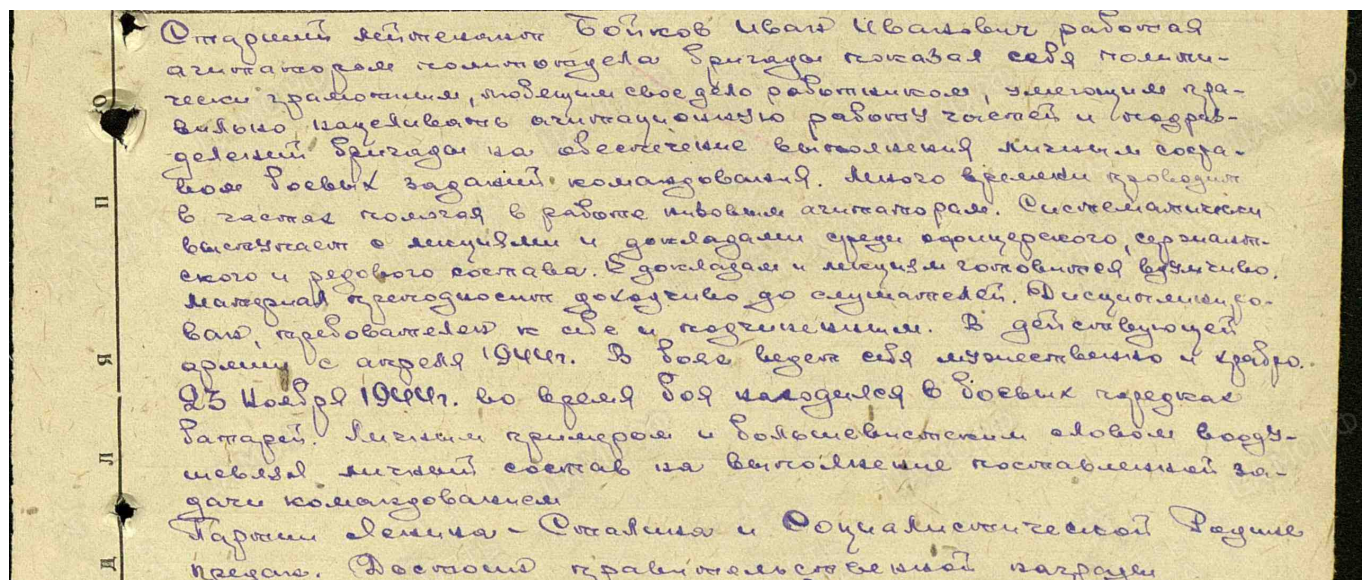 Старший лейтенант Бойков Иван Иванович работая
агитатором политотдела бригады показал себя полити-
чески грамотным, любящим свое дело работником, умеющим пра-
вильно нацеливать агитационную работу частей и подраз-
делений бригады на обеспечение выполнения личным соста-
вом боевых заданий командования. Много времени проводит
в частях помогая в работе низовым агитаторам. Систематически
выступает с лекциями и докладами среди офицерского, сержант-
ского и рядового состава. К докладам и лекциям готовится вдумчиво.
Материал преподносит доходчиво до слушателей. Дисциплиниро-
ван, требователен к себе и подчиненным. В действующей
армии с апреля 1944г. В боях ведет себя мужественно и храбро.
25 Ноября 1944г. во время боя находился в боевых порядках
батарей. Личным примером и большевистским словом вооду-
шевлял личный состав на выполнение поставленной за-
дачи командованием
Партии Ленина-Сталина и Социалистической Родине
предан. Достоин правительственной награды
О
П
Я
Л
Д